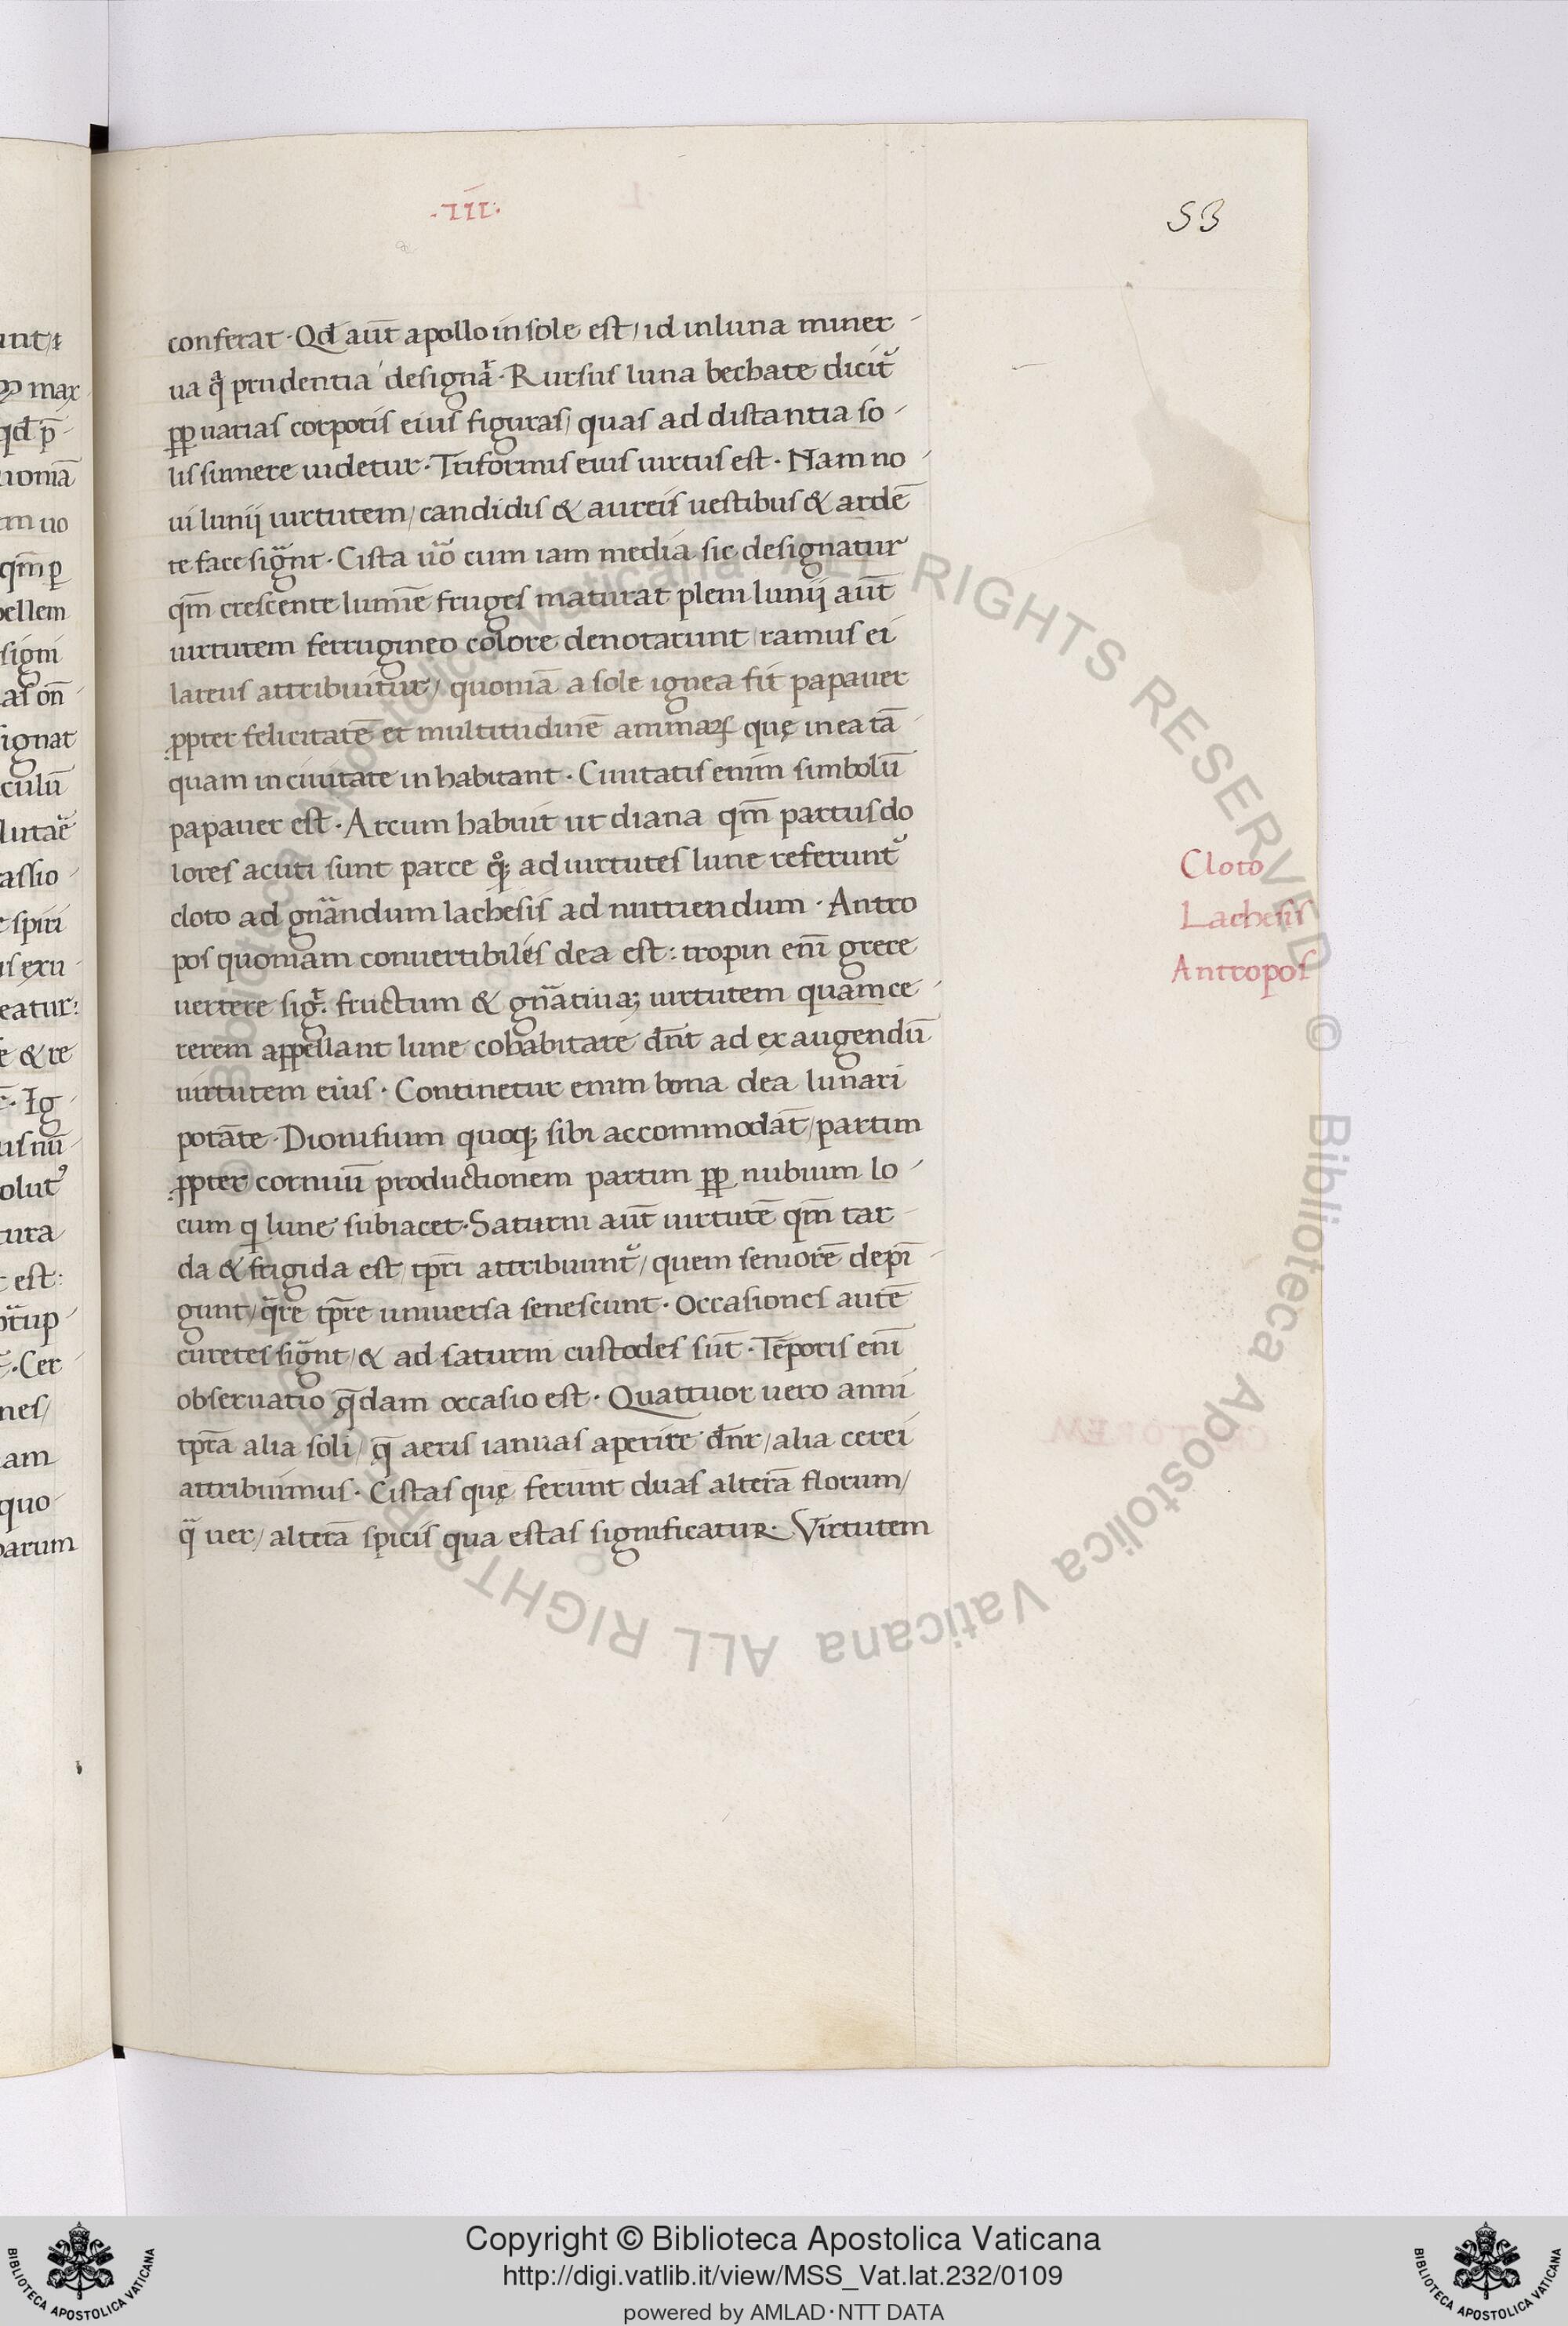 .III.
53
conferat · Qd̄ aūt apollo in sole est / id in luna miner-
ua q̄ prudentia designāt · Rursus luna hechate dicit᷑
ꝓp uarias corporis eius figuras / quas ad distantia so-
lis sumere uidetur · Triformis eius uirtus est · Nam no-
ui lunij uirtutem / candidis & aureis uestibus & ardē-
te face signāt · Cista ūo cum iam media sic designatur
qm̄ crescente lumīe fruges maturat pleni lunij aūt
uirtutem ferrugineo colore denotarunt / ramus ei
lateus attribuitur / quoniā a sole ignea fit papauer
ꝓpter felicitatē et multitudinē animaꝝ quę in ea tā-
quam in ciuitate inhabitant · Ciuitatis enim simbolū
papauer est · Arcum habuit ut diana qm̄ partus do
lores acuti sunt parce qͦꝫ ad uirtutes lune referunt᷑
cloto ad gn̄andum lachesis ad nutriendum · Antro
pos quoniam conuertibiles dea est : tropin eni̅ grece
uertere sig᷑. fructum & gn̄atiuaꝫ uirtutem quam ce-
rerem appellant lune cohabitare dn̄t ad exaugendū
uirtutem eius · Continetur enim bona dea lunari
potāte · Dionisium quoqꝫ sibi accommodāt / partim
ꝓpter cornuū productionem partim ꝓp nubium lo-
cum q lune subiacet · Saturni aūt uirtutē qm̄ tar-
da & frigida est / tp̄ri attribuunt᷑ / quem seniorē depī-
gunt / q̄re tp̄re uniuersa senescunt · Occasiones autē
curetes signāt / & ad saturni custodes sūt · Tēporis eni̅
obseruatio q̄dam occasio est · Quattuor uero anni
tp̄ra alia soli / q̄ aeris ianuas aperire dn̄t / alia cereri
attribuimus · Cistas quę ferunt duas alterā florum /
q̄ uer / alterā spicis qua estas significatur · Virtutem
Cloto
Lachesis
Antropos
Copyright © Biblioteca Apostolica Vaticana
http://digi.vatlib.it/view/MSS_Vat.lat.232/0109
powered by AMLAD·NTT DATA